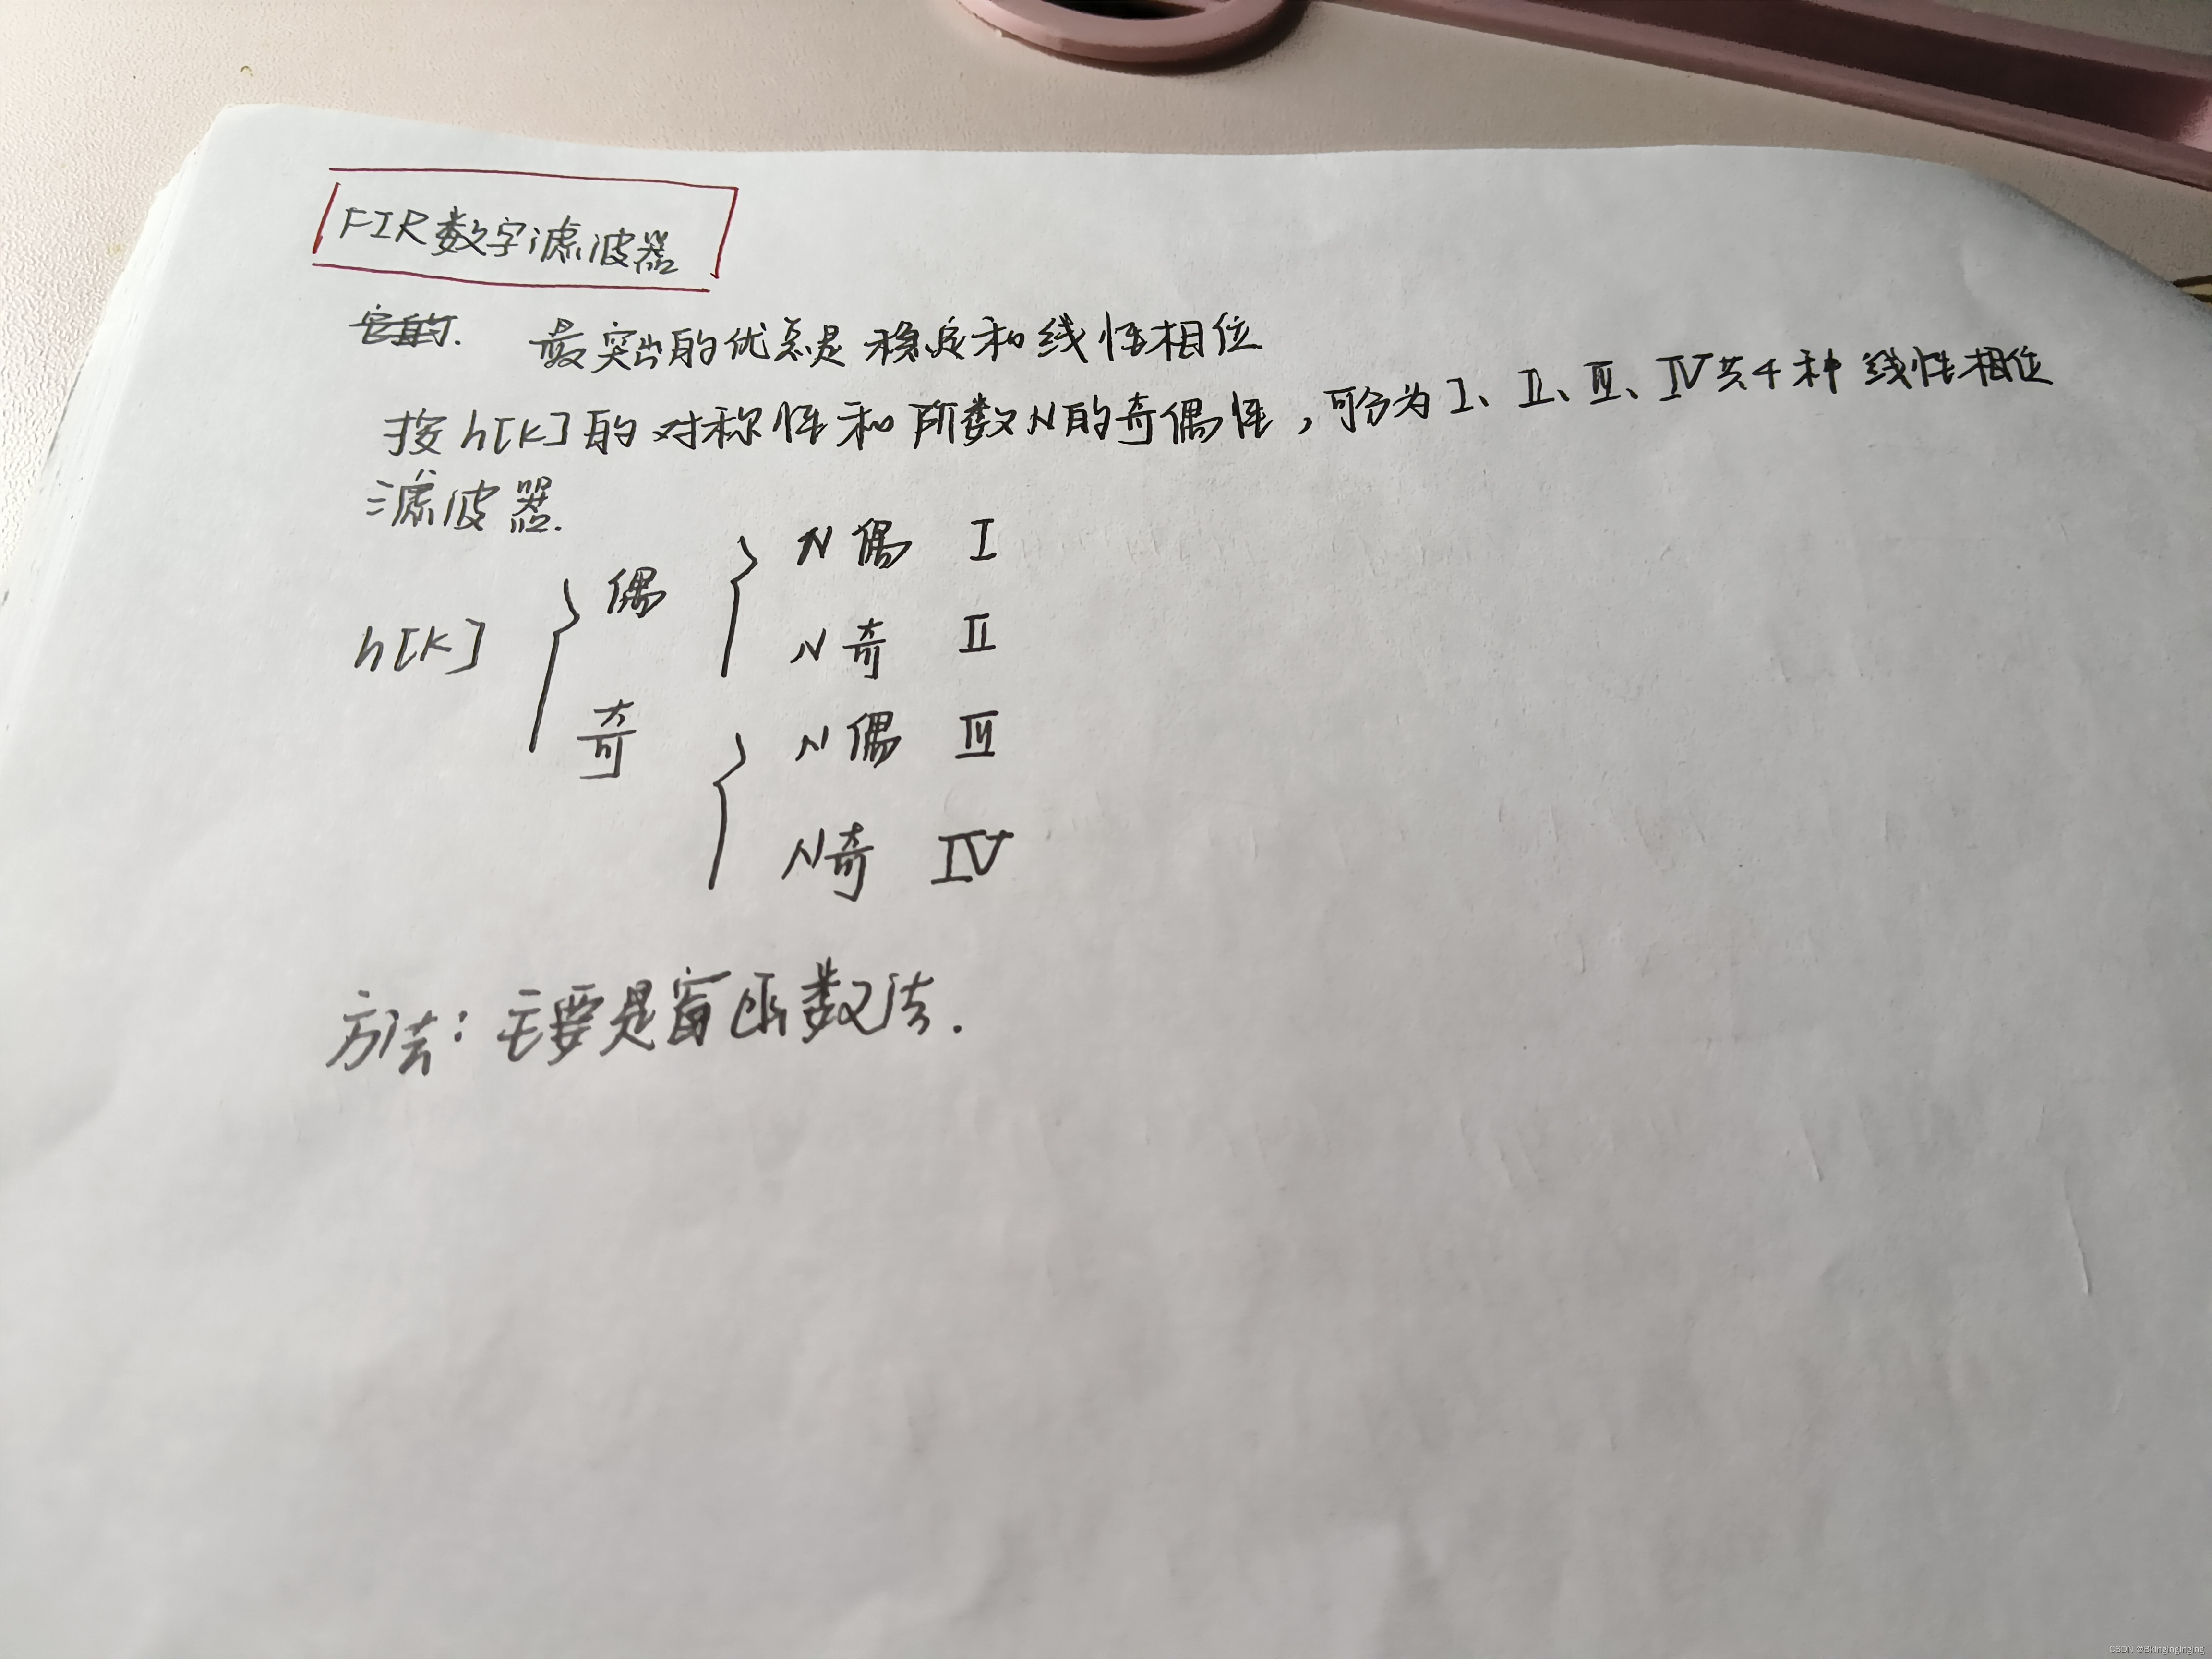 FIR数字滤波器
最突出的优点是稳定和线性相位
按h[k]的对称性和阶数N的奇偶性,可分为I、II、III、IV共4种线性相位
滤波器.
h[k]
偶
N偶 I
N奇 II
奇
N偶 III
N奇 IV
方法:主要是窗函数法.
CSDN @Bkinginginging